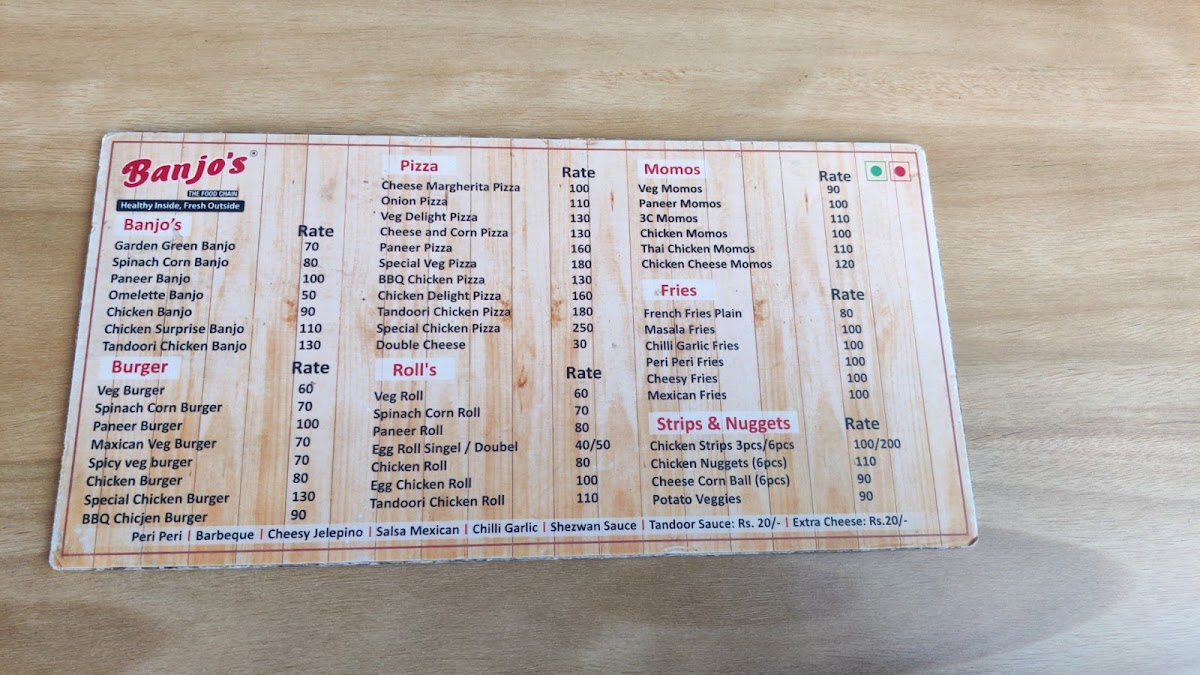 Banjo's®
THE FOOD CHAIN
Healthy Inside, Fresh Outside
Banjo's Rate
Garden Green Banjo 70
Spinach Corn Banjo 80
Paneer Banjo 100
Omelette Banjo 50
Chicken Banjo 90
Chicken Surprise Banjo 110
Tandoori Chicken Banjo 130
Burger Rate
Veg Burger 60
Spinach Corn Burger 70
Paneer Burger 100
Maxican Veg Burger 70
Spicy veg burger 70
Chicken Burger 80
Special Chicken Burger 130
BBQ Chicjen Burger 90
Pizza Rate
Cheese Margherita Pizza 100
Onion Pizza 110
Veg Delight Pizza 130
Cheese and Corn Pizza 130
Paneer Pizza 160
Special Veg Pizza 180
BBQ Chicken Pizza 130
Chicken Delight Pizza 160
Tandoori Chicken Pizza 180
Special Chicken Pizza 250
Double Cheese 30
Roll's Rate
Veg Roll 60
Spinach Corn Roll 70
Paneer Roll 80
Egg Roll Singel / Doubel 40/50
Chicken Roll 80
Egg Chicken Roll 100
Tandoori Chicken Roll 110
Momos Rate
Veg Momos 90
Paneer Momos 100
3C Momos 110
Chicken Momos 100
Thai Chicken Momos 110
Chicken Cheese Momos 120
Fries Rate
French Fries Plain 80
Masala Fries 100
Chilli Garlic Fries 100
Peri Peri Fries 100
Cheesy Fries 100
Mexican Fries 100
Strips & Nuggets Rate
Chicken Strips 3pcs/6pcs 100/200
Chicken Nuggets (6pcs) 110
Cheese Corn Ball (6pcs) 90
Potato Veggies 90
Peri Peri | Barbeque | Cheesy Jelepino | Salsa Mexican | Chilli Garlic | Shezwan Sauce | Tandoor Sauce: Rs. 20/- | Extra Cheese: Rs.20/-